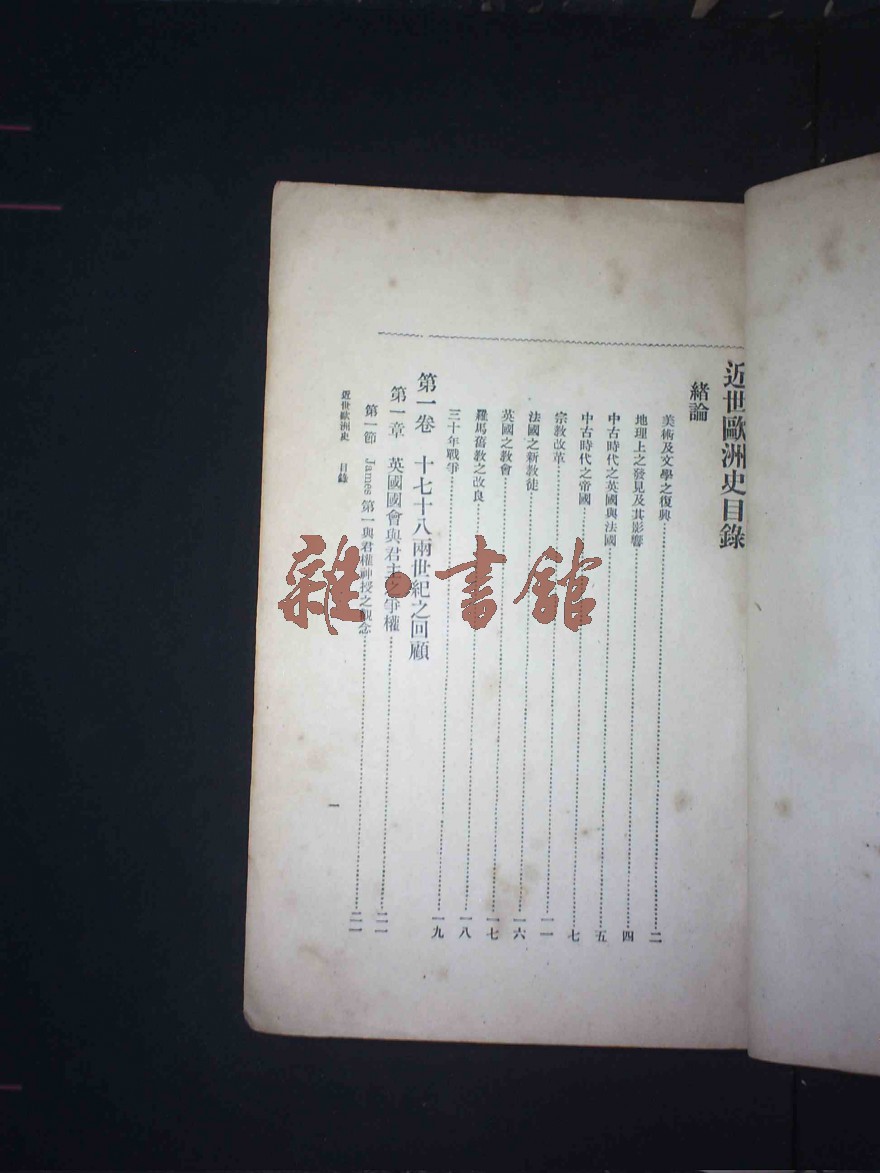 近世歐洲史目錄
緒論
美術及文學之復興……二
地理上之發見及其影響……四
中古時代之英國與法國……五
中古時代之帝國……七
宗教改革……一一
法國之新教徒……一六
英國之教會……一七
羅馬舊教之改良……一八
三十年戰爭……一九
第一卷 十七十八兩世紀之回顧
第一章 英國國會與君主之爭權……二一
第一節 James第一與君權神授之觀念……二一
近世歐洲史 目錄
一
雜·書館